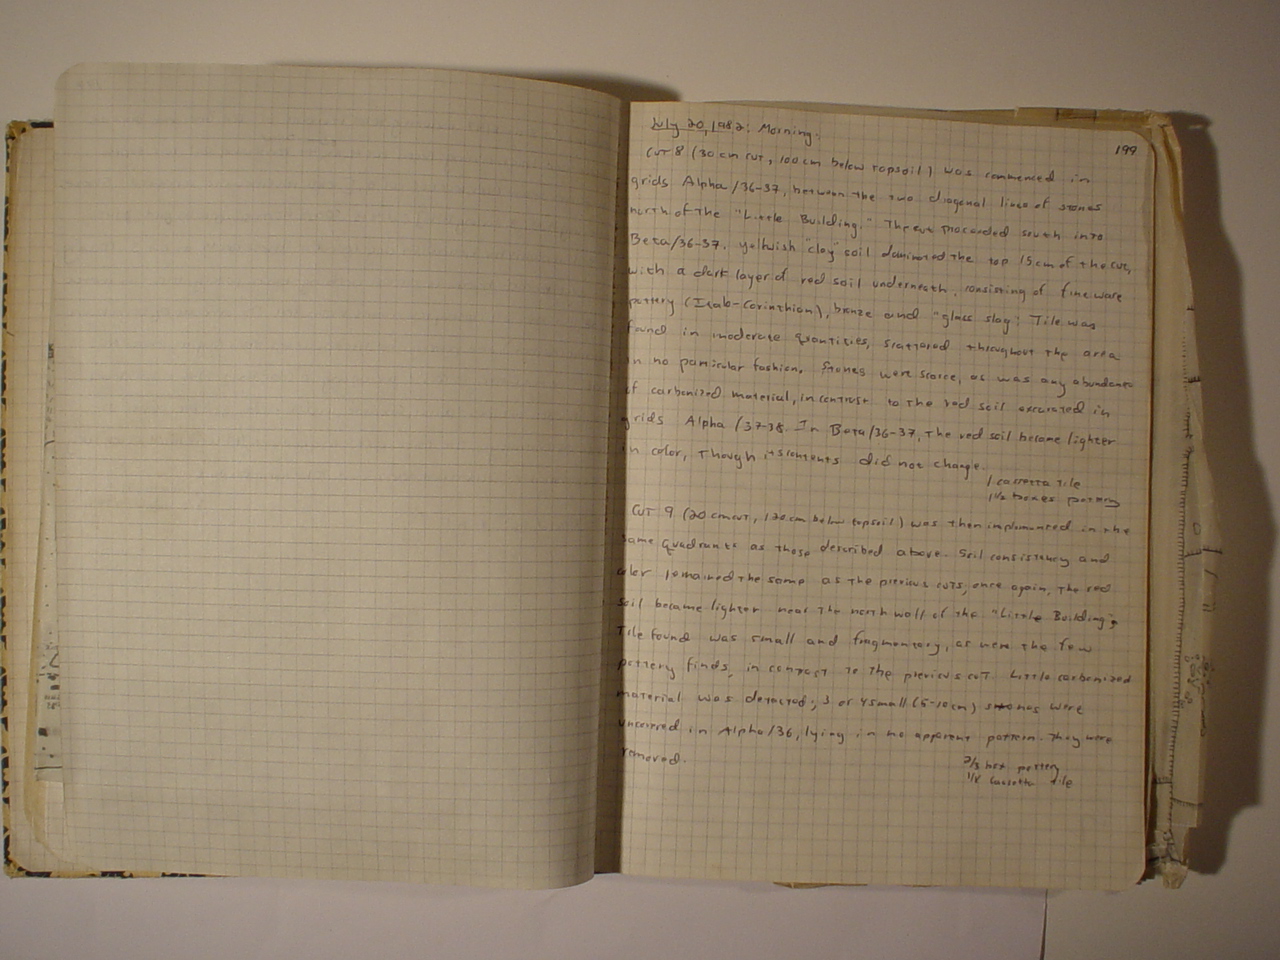 July 20, 1982: Morning.
199
Cut 8 (30 cm cut, 100 cm below topsoil) was commenced in
grids Alpha/36-37, between the two diagonal lines of stones
north of the "Little Building." The cut proceeded south into
Beta/36-37. Yellwish "clay" soil dominated the top 15 cm of the cut,
with a dark layer of red soil underneath, consisting of fine ware
pottery (Italo-Corinthian), bronze and "glass slag". Tile was
found in moderate quantities, scattered throughout the area
in no particular fashion. Stones were scarce, as was any abundance
of carbonized material, in contrast to the red soil excavated in
grids Alpha/37-38. In Beta/36-37, the red soil became lighter
in color, though its contents did not change.
1 cassetta tile
1 1/2 boxes pottery
Cut 9 (20 cm cut, 120 cm below topsoil) was then implemented in the
same quadrants as those described above. Soil consistency and
color remained the same as the previous cuts, once again, the red
soil became lighter near the north wall of the "Little Building".
Tile found was small and fragmentary, as were the few
pottery finds, in contrast to the previous cut. Little carbonized
material was detected; 3 or 4 small (5-10 cm) stones were
uncovered in Alpha/36, lying in no apparent pattern. They were
removed.
2/3 box pottery
cassetta tile